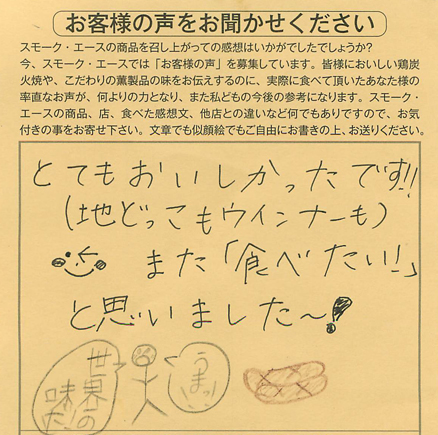 お客様の声をお聞かせください
スモーク・エースの商品を召し上がっての感想はいかがでしたでしょうか?
今、スモーク・エースでは「お客様の声」を募集しています。皆様においしい鶏炭
火焼や、こだわりの薫製品の味をお伝えするのに、実際に食べて頂いたあなた様の
率直なお声が、何よりの力となり、また私どもの今後の参考になります。スモーク・
エースの商品、店、食べた感想文、他店との違いなど何でもありですので、お気
付きの事をお寄せ下さい。文章でも似顔絵でもご自由にお書きの上、お送りください。
とてもおいしかったです!!
(地どっこもウインナーも)
また「食べたい!」
と思いました〜!
世界の
味だ!
うまい